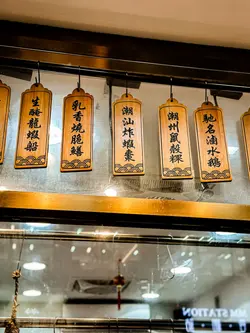 生醃龍蝦船
乳香燒脆鱔
潮汕炸蝦棗
潮州鼠殼粿
馳名滷水鵝
STATION